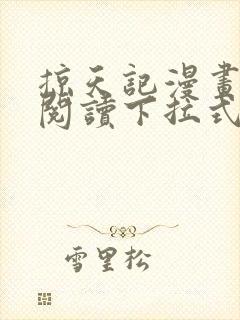 掠天記漫畫
閱讀下拉式
雪里松